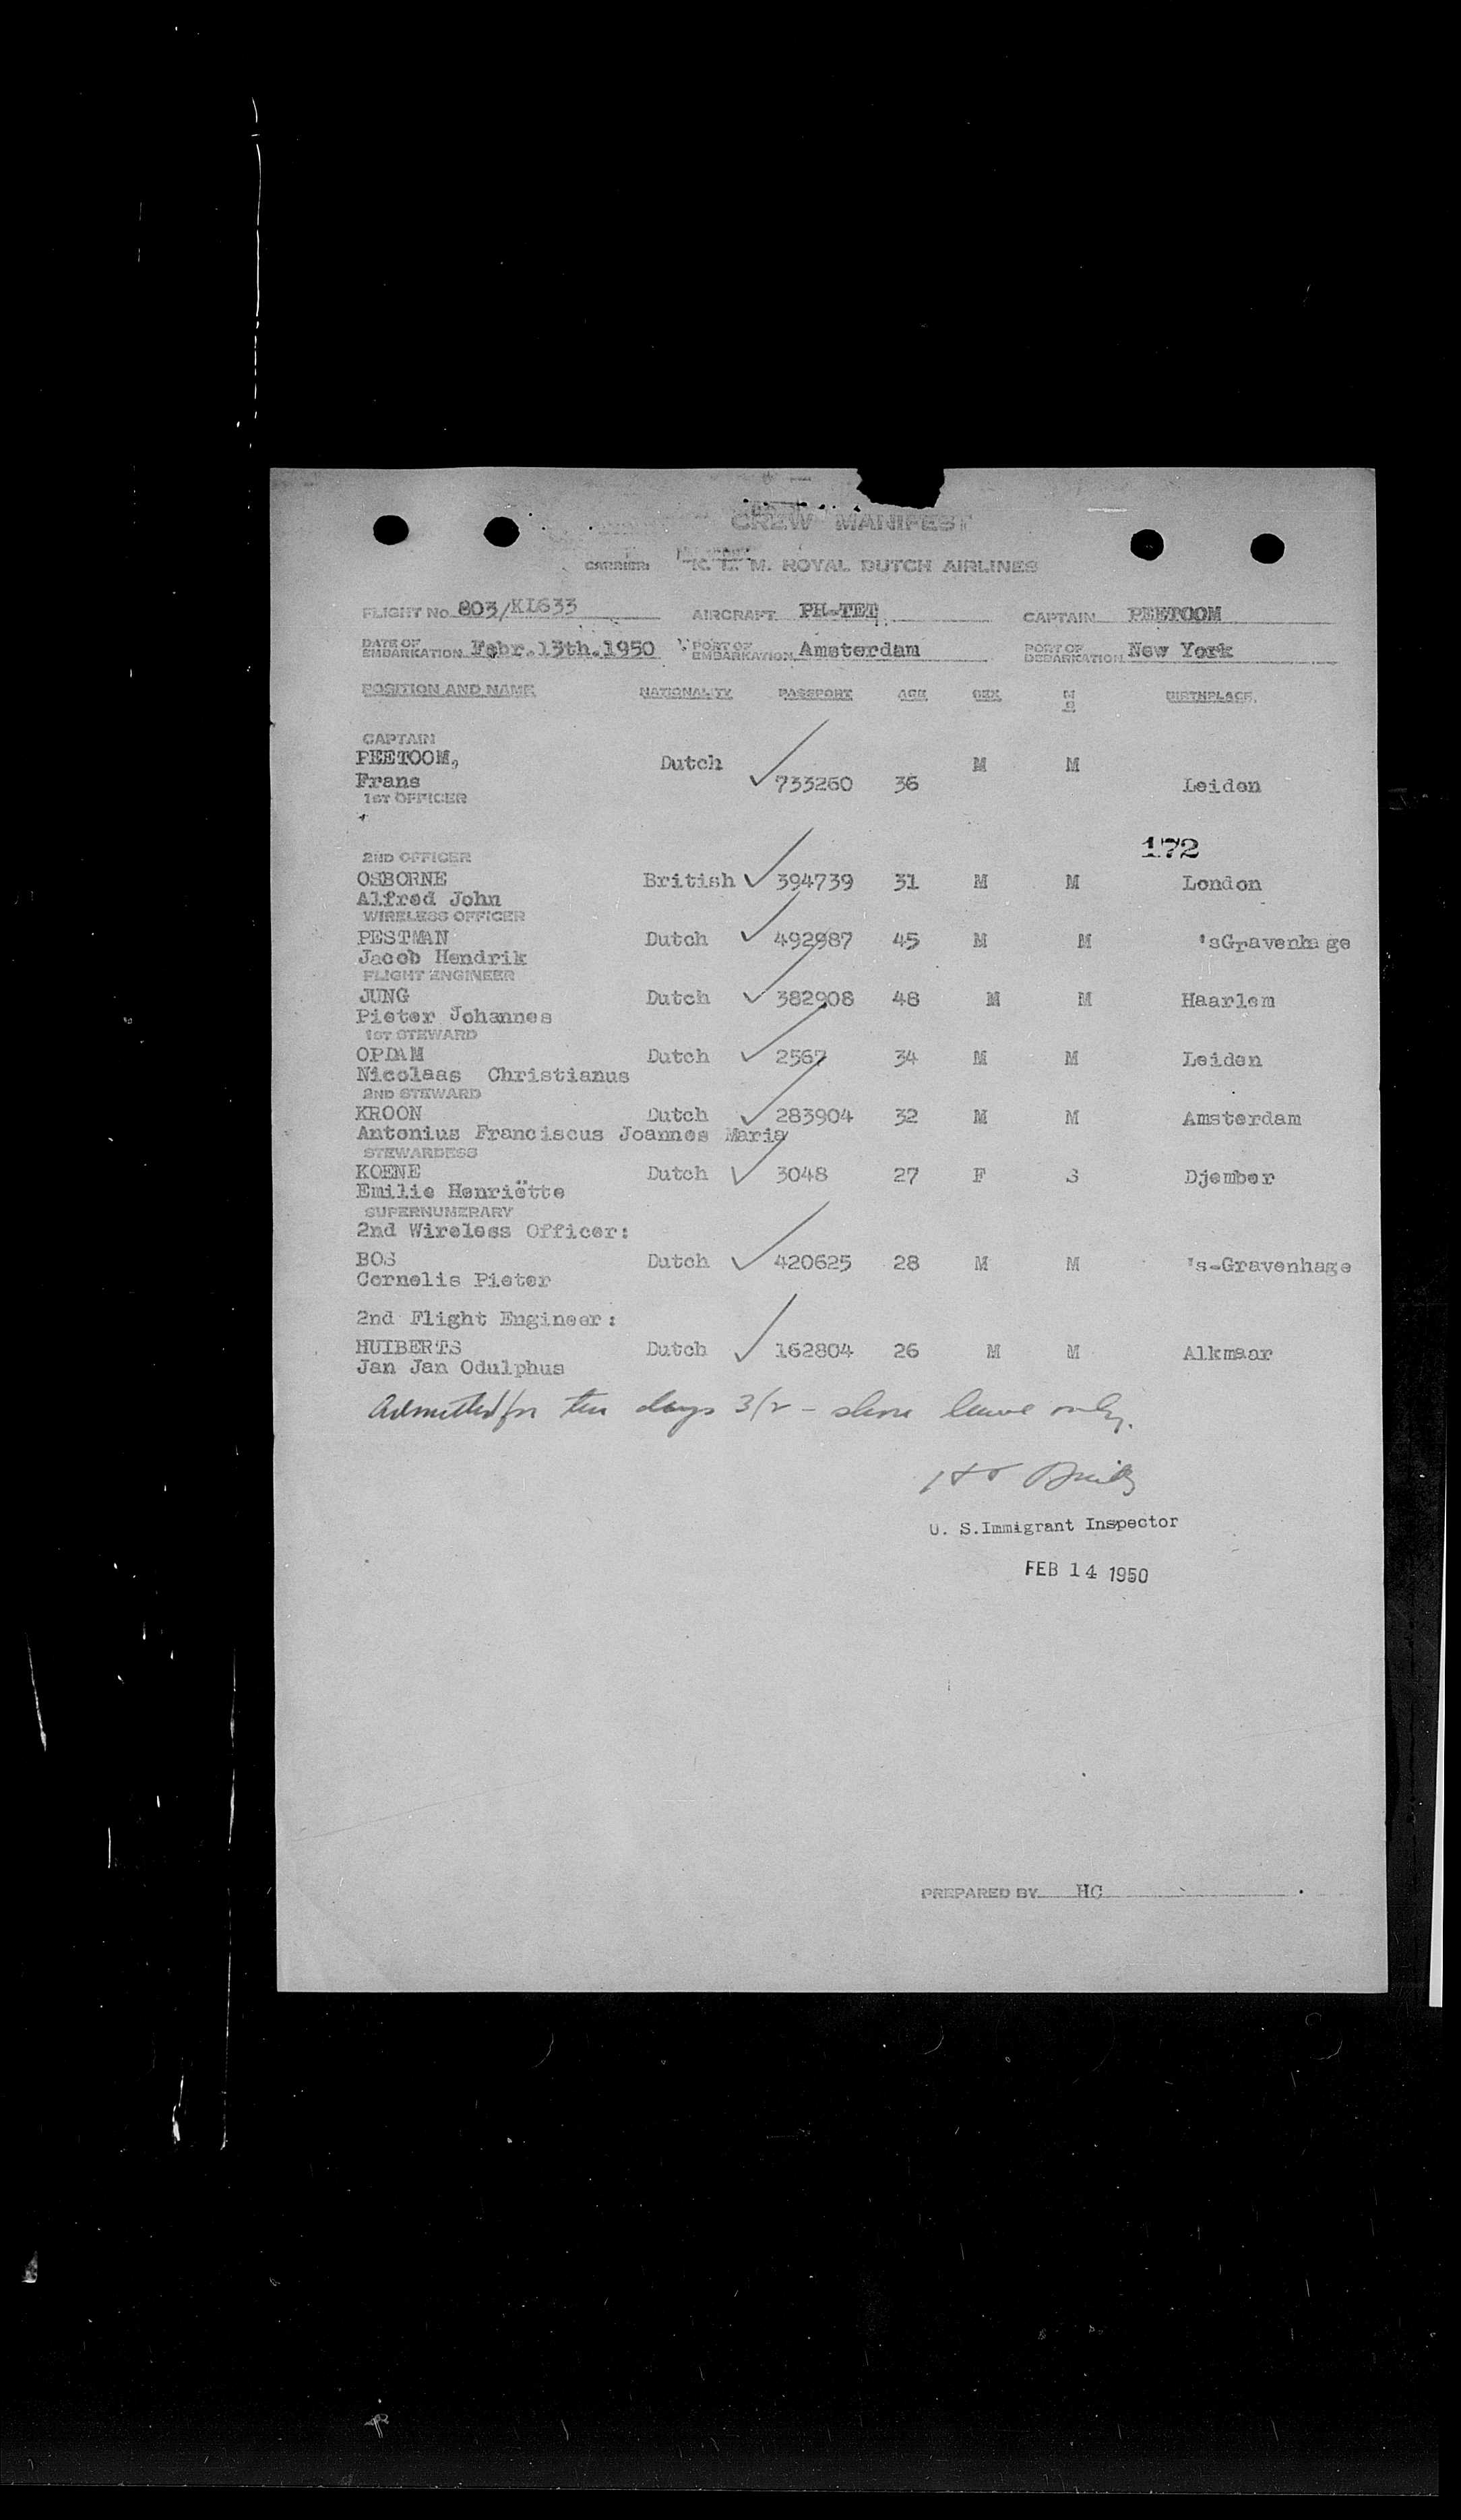 CREW MANIFEST
CARRIER: K. L. M. ROYAL DUTCH AIRLINES
FLIGHT No. 803/KL633 AIRCRAFT PH-TET CAPTAIN PEETOOM
DATE OF EMBARKATION Febr.13th.1950 PORT OF EMBARKATION Amsterdam PORT OF DEBARKATION New York
POSITION AND NAME NATIONALITY PASSPORT AGE SEX M S BIRTHPLACE
CAPTAIN
PEETOOM, Dutch M M
Frans 733260 36 Leiden
1ST OFFICER
172
2ND OFFICER
OSBORNE British 394739 31 M M London
Alfred John
WIRELESS OFFICER
PESTMAN Dutch 492987 45 M M 'sGravenhage
Jacob Hendrik
FLIGHT ENGINEER
JUNG Dutch 382908 48 M M Haarlem
Pieter Johannes
1ST STEWARD
OPDAM Dutch 2567 34 M M Leiden
Nicolaas Christianus
2ND STEWARD
KROON Dutch 283904 32 M M Amsterdam
Antonius Franciscus Joannes Maria
STEWARDESS
KOENE Dutch 3048 27 F S Djember
Emilie Henriëtte
SUPERNUMERARY
2nd Wireless Officer:
BOS Dutch 420625 28 M M 's-Gravenhage
Cornelis Pieter
2nd Flight Engineer:
HUIBERTS Dutch 162804 26 M M Alkmaar
Jan Jan Odulphus
Admitted for ten days 3/2 - shore leave only.
U. S. Immigrant Inspector
FEB 14 1950
PREPARED BY HC